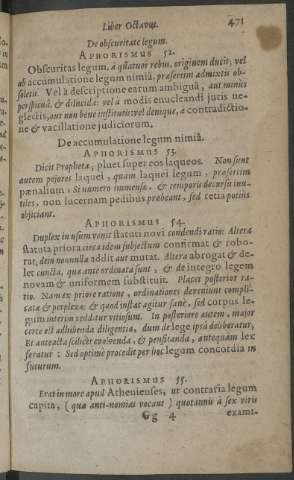 Liber Octavus. 471
De obscuritate legum.
APHORISMUS 52.
Obscuritas legum, à quatuor rebus, originem ducit; vel
ab accumulatione legum nimiâ, præsertim admixtis ob-
soletis. Vel à descriptione earum ambiguâ, aut minùs
perspicuâ, & dilucidâ: vel à modis enucleandi juris ne-
glectis, aut non bene institutis: vel denique, à contradictio-
ne & vacillatione judiciorum.
De accumulatione legum nimiâ.
APHORISMUS 53.
Dicit Propheta, pluet super eos laqueos. Non sunt
autem pejores laquei, quam laquei legum, præsertim
pœnalium: Si numero immensæ, & temporis decursu inu-
tiles, non lucernam pedibus præbeant, sed retia potiùs
objiciant.
APHORISMUS 54.
Duplex in usum venit statuti novi condendi ratio: Altera
statuta priora circa idem subjectum confirmat & robo-
rat, dein nonnulla addit aut mutat. Altera abrogat & de-
let cuncta, quæ ante ordinata sunt, & de integro legem
novam & uniformem substituit. Placet posterior ra-
tio. Nam ex priore ratione, ordinationes deveniunt compli-
catæ & perplexæ: & quod instat agitur sanè, sed corpus le-
gum interim redditur vitiosum. In posteriore autem, major
certè est adhibenda diligentia, dum de lege ipsâ deliberatur,
Et anteacta scilicet evolvenda, & pensitanda, antequam lex
feratur: Sed optimè procedit per hoc legum concordia in
futurum.
APHORISMUS 55.
Erat in more apud Athenienses, ut contraria legum
capita, (quæ anti-nomias vocant) quotannis à sex viris
Gg 4 exami-